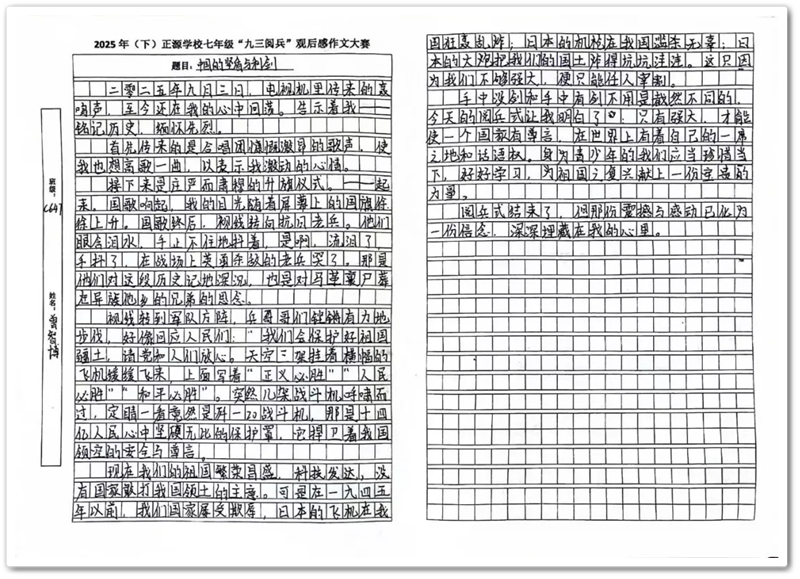 2025年（下）正源学校七年级“九三阅兵”观后感作文大赛
题目：中国的坚盾与利剑
班级：C647
姓名：曾智博
二零二五年九月三日，电视机里传来的轰
响声，至今还在我的心中回荡。告示着我——
铭记历史，缅怀先烈。
首先传来的是合唱团慷慨激昂的歌声，使
我也想高歌一曲，以表示我激动的心情。
接下来是庄严而肃穆的升旗仪式。——起
来，国歌响起，我的目光随着屏幕上的国旗徐
徐上升。国歌终后，视线转向抗日老兵。他们
眼含泪水，手止不住地抖着，是啊，流泪了，
手抖了，在战场上英勇奋战的老兵哭了。那是
他们对这段历史记地深沉，也是对马革裹尸葬
在异族他乡的兄弟的思念。
视线转到军队方阵，兵哥哥们铿锵有力地
步伐，好像回应人民们：“我们会保护好祖国
疆土，请党和人们放心。天空三架挂着横幅的
飞机缓缓飞来，上面写着“正义必胜”“人民
必胜”“和平必胜”。突然几架战斗机呼啸而
过，定睛一看竟然是歼—20战斗机，那是十四
亿人民心中坚硬无比的保护罩，它捍卫着我国
领空的安全与尊言。
现在我们的祖国繁荣昌盛，科技发达，没
有国家敢打我国领土的主意。可是在一九四五
年以前，我们国家屡受欺辱，日本的飞机在我
国狂轰乱炸；日本的机枪在我国滥杀无辜；日
本的大炮把我们的国土炸得坑坑洼洼。这只因
为我们不够强大，便只能任人宰割。
手中没剑和手中有剑不用是截然不同的，
今天的阅兵式让我明白了，只有强大，才能
使一个国家有尊言，在世界上有着自己的一席
之地和话语权。身为青少年的我们应当珍惜当
下，好好学习，为祖国之复兴献上一份宝贵的
力量。
阅兵式结束了，但那份震撼与感动已化为
一份信念，深深埋藏在我的心里。